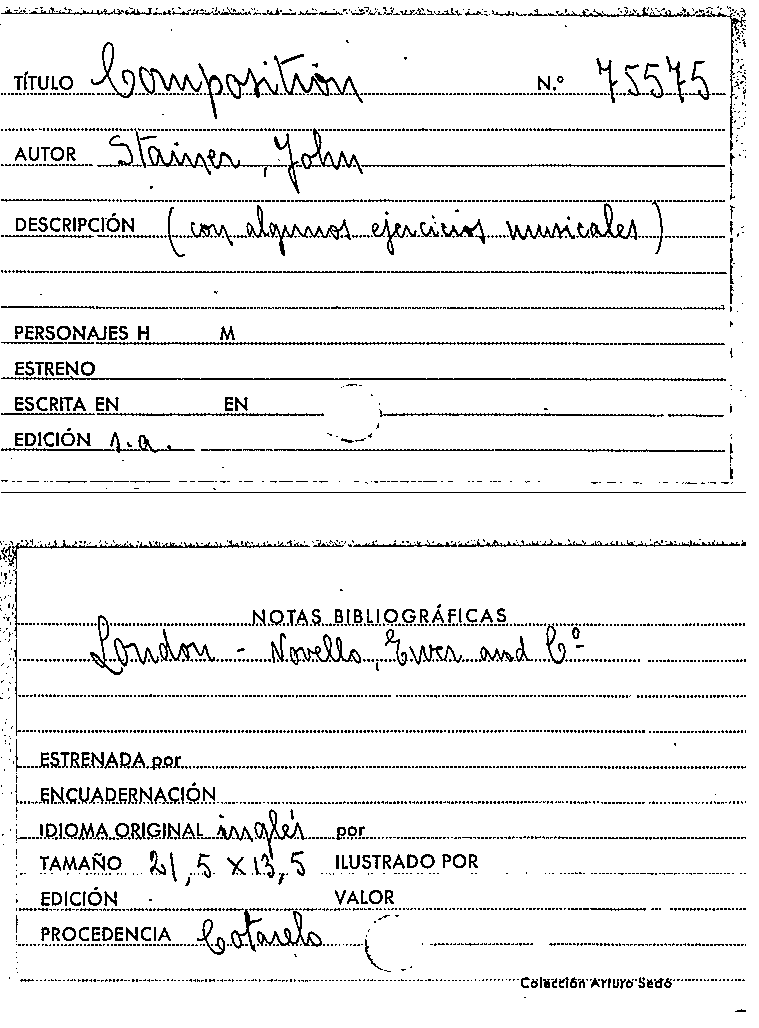 TÍTULO Composition N.º 75575
AUTOR Stainer, John
DESCRIPCIÓN (con algunos ejercicios musicales)
PERSONAJES H M
ESTRENO
ESCRITA EN EN
EDICIÓN s.a.
NOTAS BIBLIOGRÁFICAS
London - Novello, Ewer and Cº
ESTRENADA por
ENCUADERNACIÓN
IDIOMA ORIGINAL inglés por
TAMAÑO 21,5 X 13,5 ILUSTRADO POR
EDICIÓN VALOR
PROCEDENCIA Cotarelo
Colección Arturo Sedó